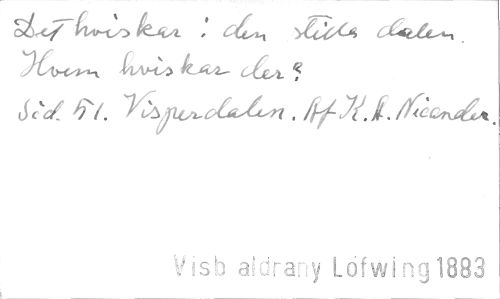 Det hviskar i den stilla dalen.
Hvem hviskar der?
Sid. 51. Visperdalen. Af K. A. Nicander.
Visb aldrany Löfwing 1883